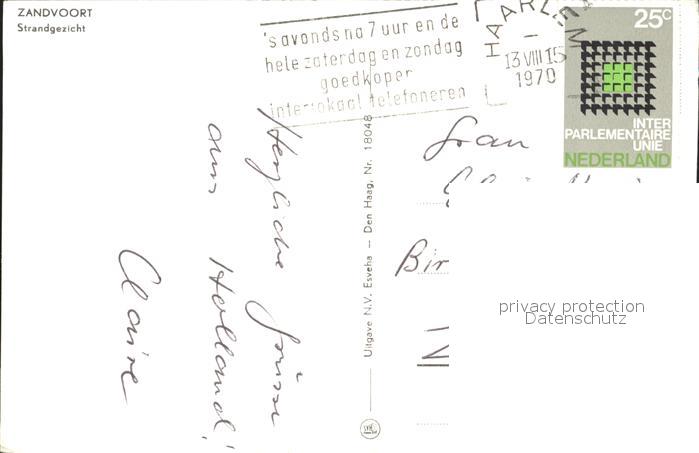 ZANDVOORT
Strandgezicht
's avonds na 7 uur en de
hele zaterdag en zondag
goedkoper
interlokaal telefoneren
HAARLEM
13 VIII 15
1970
25c
INTER
PARLEMENTAIRE
UNIE
NEDERLAND
Herzliche Grüsse
aus Holland!
Claire
Uitgave N.V. Esveha – Den Haag, Nr. 18048
Frau
Bir
privacy protection
Datenschutz